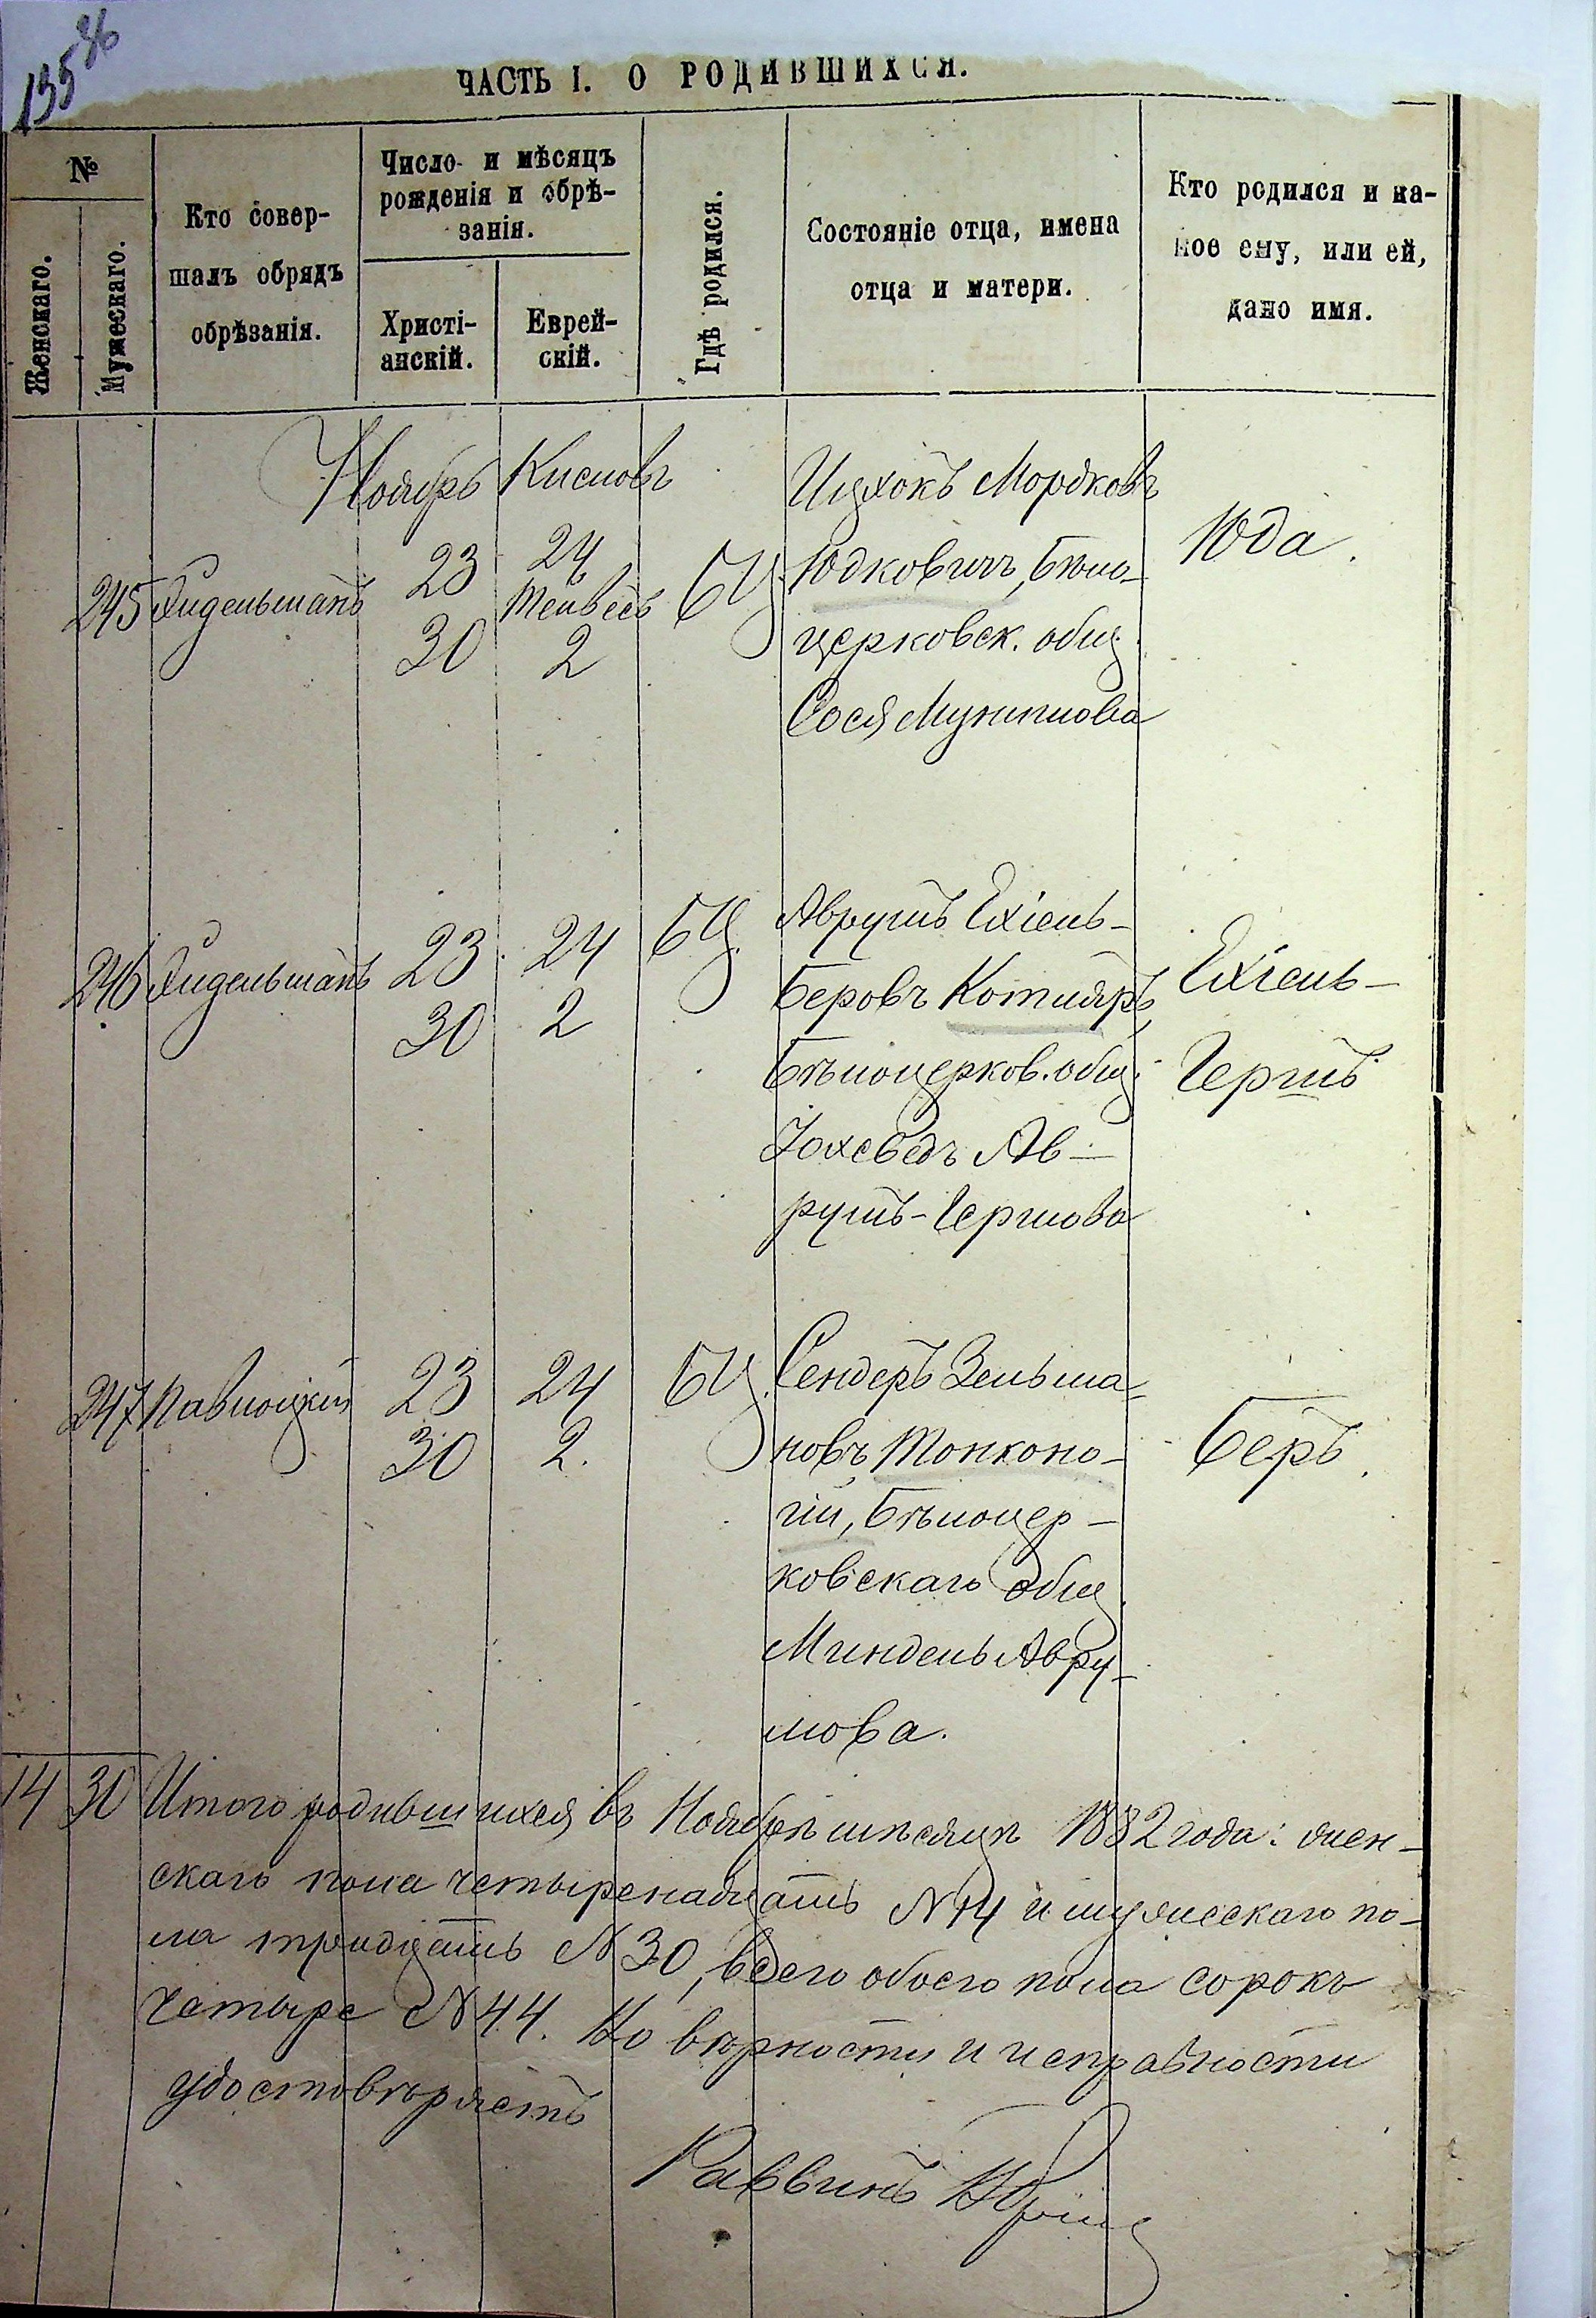 135 86
ЧАСТЬ I. О РОДИВШИХСЯ.
№
Женскаго.
Мужескаго.
Кто совер-
шалъ обрядъ
обрѣзанія.
Число и мѣсяцъ
рожденія и обрѣ-
занія.
Христі-
анскій.
Еврей-
скій.
Гдѣ родился.
Состояніе отца, имена
отца и матери.
Кто родился и ка-
кое ему, или ей,
дано имя.
Ноябрь Кислевъ
245 Эидельманъ 23 24 БЦ. Ицхокъ Мордковъ Юда.
Тейвесъ
30 2
Юдковичъ, Бѣло-
церковск. общ.
Сося
246 Эидельманъ 23 24 БЦ. Аврумъ Ехіель- Ехіель-
30 2 Беровъ Котляръ, Гершъ
Бѣлоцерков. общ.
Іохеведъ Ав-
румъ-Гершова
247 Павлоцкій 23 24 БЦ. Сендеръ Зельма- Беръ.
30 2. новъ Тонконо-
гій, Бѣлоцер-
ковскаго общ.
Миндель Авру-
мова.
14 30 Итого родившихся въ Ноябрѣ мѣсяцѣ 1882 года: жен-
скаго пола четыренадцать №14 и мужескаго по-
ла тридцать №30, всего обоего пола сорокъ
четыре №44. Но вѣрности и исправности
удостовѣряетъ
Раввинъ